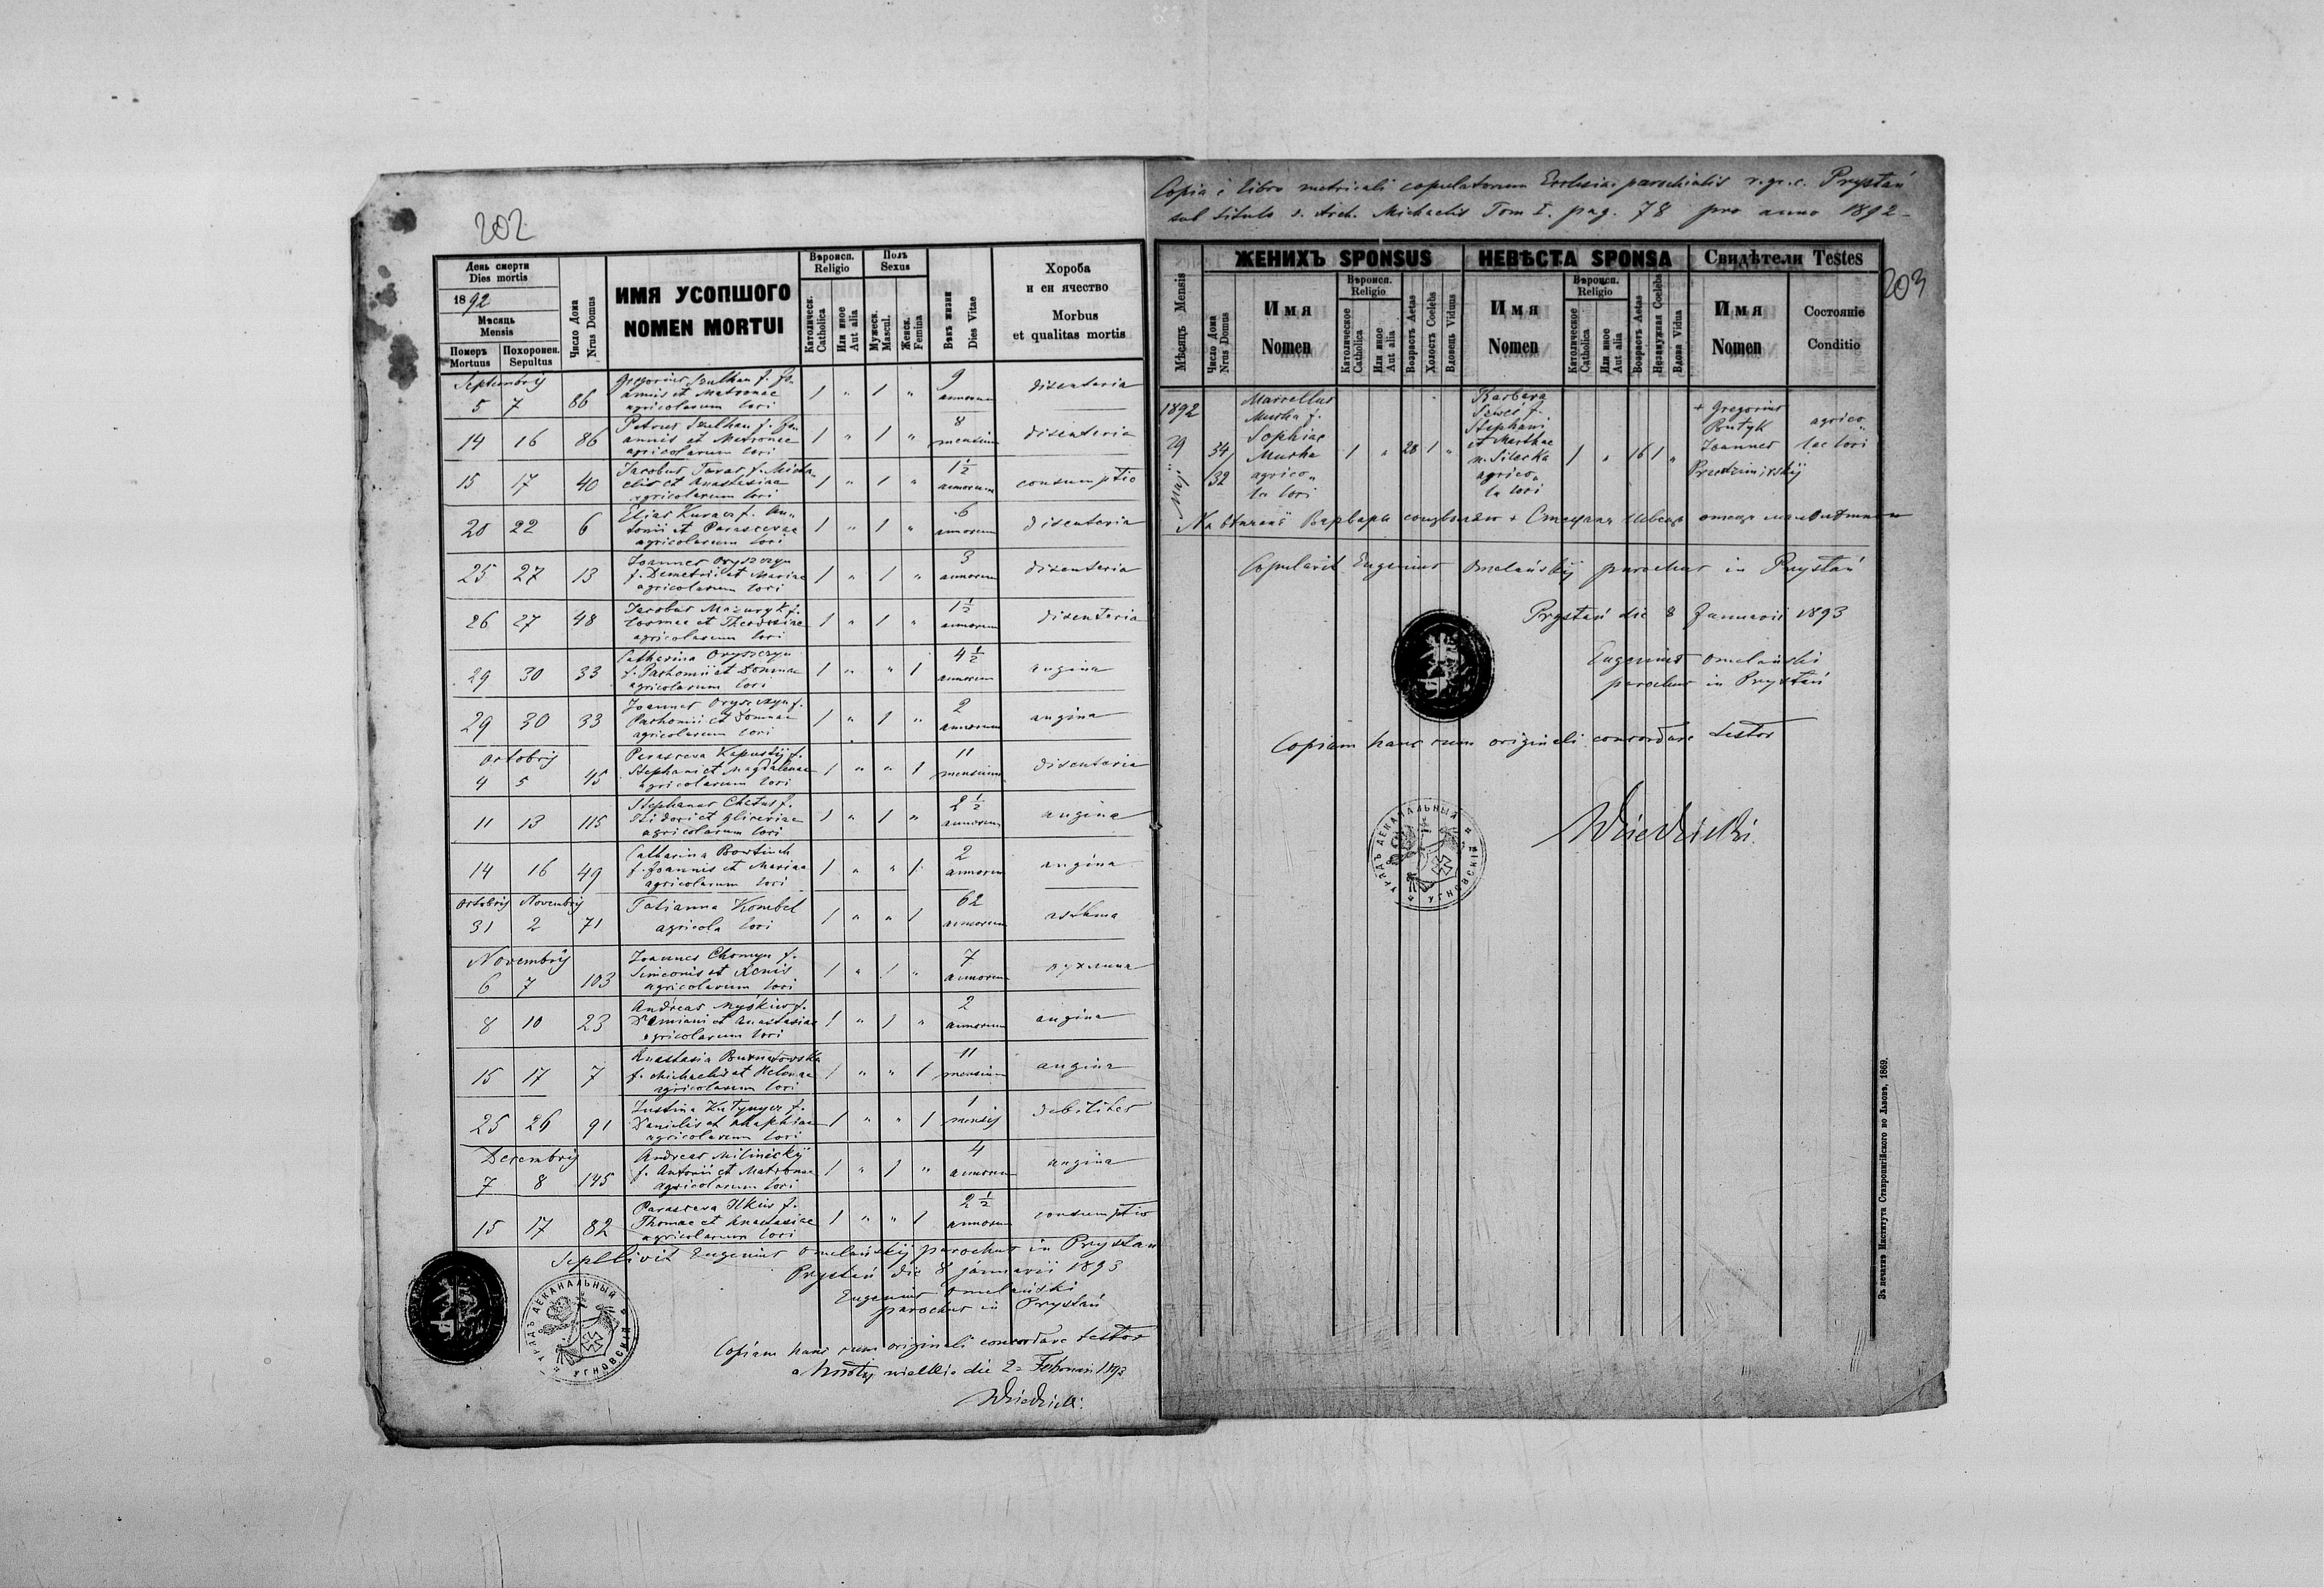 202
День смерти
Dies mortis
1892
Мѣсяць
Mensis
Померъ
Mortuus
Похоронен.
Sepultus
Число Дома
Nrus Domus
ИМЯ УСОПШОГО
NOMEN MORTUI
Вѣроисп.
Religio
Католическ.
Catholica
Или иное
Aut alia
Полъ
Sexus
Мужеск.
Mascul.
Женск.
Femina
Вѣкъ жизни
Dies Vitae
Хороба
и еи ячество
Morbus
et qualitas mortis
Septembrij
Gregorius Szulhan f. Jo
annis et Matronae
agricolarum loci
5 7 86 1 " 1 " 9 annorum disenteria
Petrus Szulhan f. Jo
annis et Matronae
agricolarum loci
14 16 86 1 " 1 " 8 mensium disenteria
Jacobus Taras f. Micha
elis et Anastasiae
agricolarum loci
15 17 40 1 " 1 " 1 1/2 annorum consumptio
Elias f. An"
tonii et Parascevae
agricolarum loci
20 22 6 1 " 1 " 6 annorum disenteria
Joannes Oryszczyn
f. Demetrii et Mariae
agricolarum loci
25 27 13 1 " 1 " 3 annorum disenteria
Jacobus Mazuryk f.
Cosmae et Theodosiae
agricolarum loci
26 27 48 1 " 1 " 1 1/2 annorum disenteria
Catharina Oryszczyn
f. Pachomii et Domnae
agricolarum loci
29 30 33 1 " " 1 4 1/2 annorum angina
Joannes Oryszczyn f.
Pachomii et Domnae
agricolarum loci
29 30 33 1 " 1 " 2 annorum angina
Octobrij
Parasceva Kapustij f.
Stephani et Magdalenae
agricolarum loci
4 5 45 1 " " 1 11 mensium disenteria
Stephanus Chetus f.
Isidori et Glireriae
agricolarum loci
11 13 115 1 " 1 " 2 1/2 annorum angina
Catharina
f. Joannis et Mariae
agricolarum loci
14 16 49 1 " " 1 2 annorum angina
Octobrij Novembrij
Tatianna Kombel
agricola loci
31 2 71 1 " " 1 62 annorum asthma
Novembrij
Joannes Chomyn f.
Simeonis et Xenis
agricolarum loci
6 7 103 1 " 1 " 7 annorum пухлина
Andreas Myśkiw f.
Damiani et Anastasiae
agricolarum loci
8 10 23 1 " 1 " 2 annorum angina
Anastasia
f. Michaelis et Helenae
agricolarum loci
15 17 7 1 " " 1 11 mensium angina
Justina f.
Danielis et Agaphiae
agricolarum loci
25 26 91 1 " " 1 1 mensis debilitas
Decembrij
Andreas Milinickij
f. Antonii et Matronae
agricolarum loci
7 8 145 1 " 1 " 4 annorum angina
Parasceva Ilkiw f.
Thomae et Anastasiae
agricolarum loci
15 17 82 1 " " 1 2 1/2 annorum consumptio
Sepelivit Eugenius Omelańskij parochus in Prystań
Prystań die 8 januarii 1893
Eugenius Omelański
parochus in Prystań
УРЯДЪ ДЕКАНАЛЬНЫЙ УГНОВСКІЙ
Copiam hanc cum originali concordare testor
a Mosty wielkie die 2 Februari 1893
Dziedzicki
Copia e libro metricali copulatorum Ecclesiae parochialis r. gr. c. Prystań
sub titulo s. Arch. Michaelis Tom I. pag. 78 pro anno 1892
203
Мѣсяць Mensis
Число Дома
Nrus Domus
ЖЕНИХЪ SPONSUS
Имя
Nomen
Вѣроисп.
Religio
Католическое
Catholica
Или иное
Aut alia
Возрастъ Aetas
Холостъ Coelebs
Вдовець Viduus
НЕВѢСТА SPONSA
Имя
Nomen
Вѣроисп.
Religio
Католическое
Catholica
Или иное
Aut alia
Возрастъ Aetas
Незамужная Coelebs
Вдова Vidua
Свидѣтели Testes
Имя
Nomen
Состояніе
Conditio
1892
29
Maji
34/
/32
Marcellus
Mucha f.
Sophiae
Mucha
agrico"
la loci
1 " 28 1 "
Barbara
f.
Stephani
et Marthae
n. Silecka
agrico"
la loci
1 " 16 1 "
+ Gregorius
Butyk
Joannes
agrico"
lae loci
Варвары + Стефанъ отець
Copulavit Eugenius Omelańskij parochus in Prystań
Prystań die 8 Januarii 1893
Eugenius Omelański
parochus in Prystań
Copiam hanc cum originali concordare testor
Dziedzicki
УРЯДЪ ДЕКАНАЛЬНЫЙ УГНОВСКІЙ
Зъ печатнѣ Института Ставропигійского во Львовѣ, 1869.